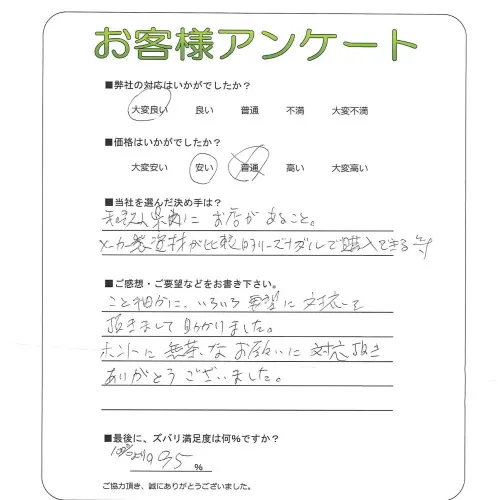 お客様アンケート
■弊社の対応はいかがでしたか？
大変良い 良い 普通 不満 大変不満
■価格はいかがでしたか？
大変安い 安い 普通 高い 大変高い
■当社を選んだ決め手は？
県内に お店が あること。
メーカー製資材が比較的リーズナブルで購入できる
■ご感想・ご要望などをお書き下さい。
こと細かに、いろいろ 要望に 対応して
頂きまして 助かりました。
ホントに 無茶なお願いに 対応頂き
ありがとうございました。
■最後に、ズバリ満足度は何%ですか？
95 %
ご協力頂き、誠にありがとうございました。